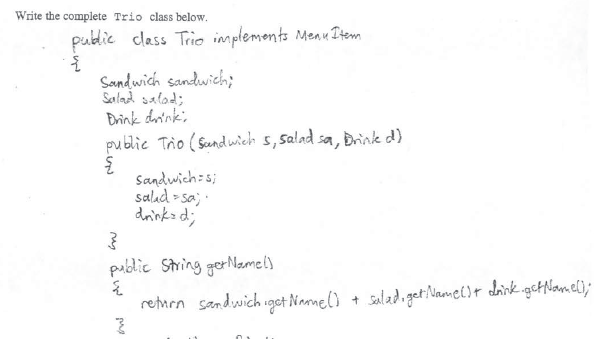 Write the complete Trio class below.
public class Trio implements MenuItem
{
Sandwich sandwich;
Salad salad;
Drink drink;
public Trio (Sandwich s, Salad sa, Drink d)
{
sandwich=s;
salad=sa;
drink=d;
}
public String getName()
{
return sandwich.getName() + salad.getName()+ drink.getName();
}